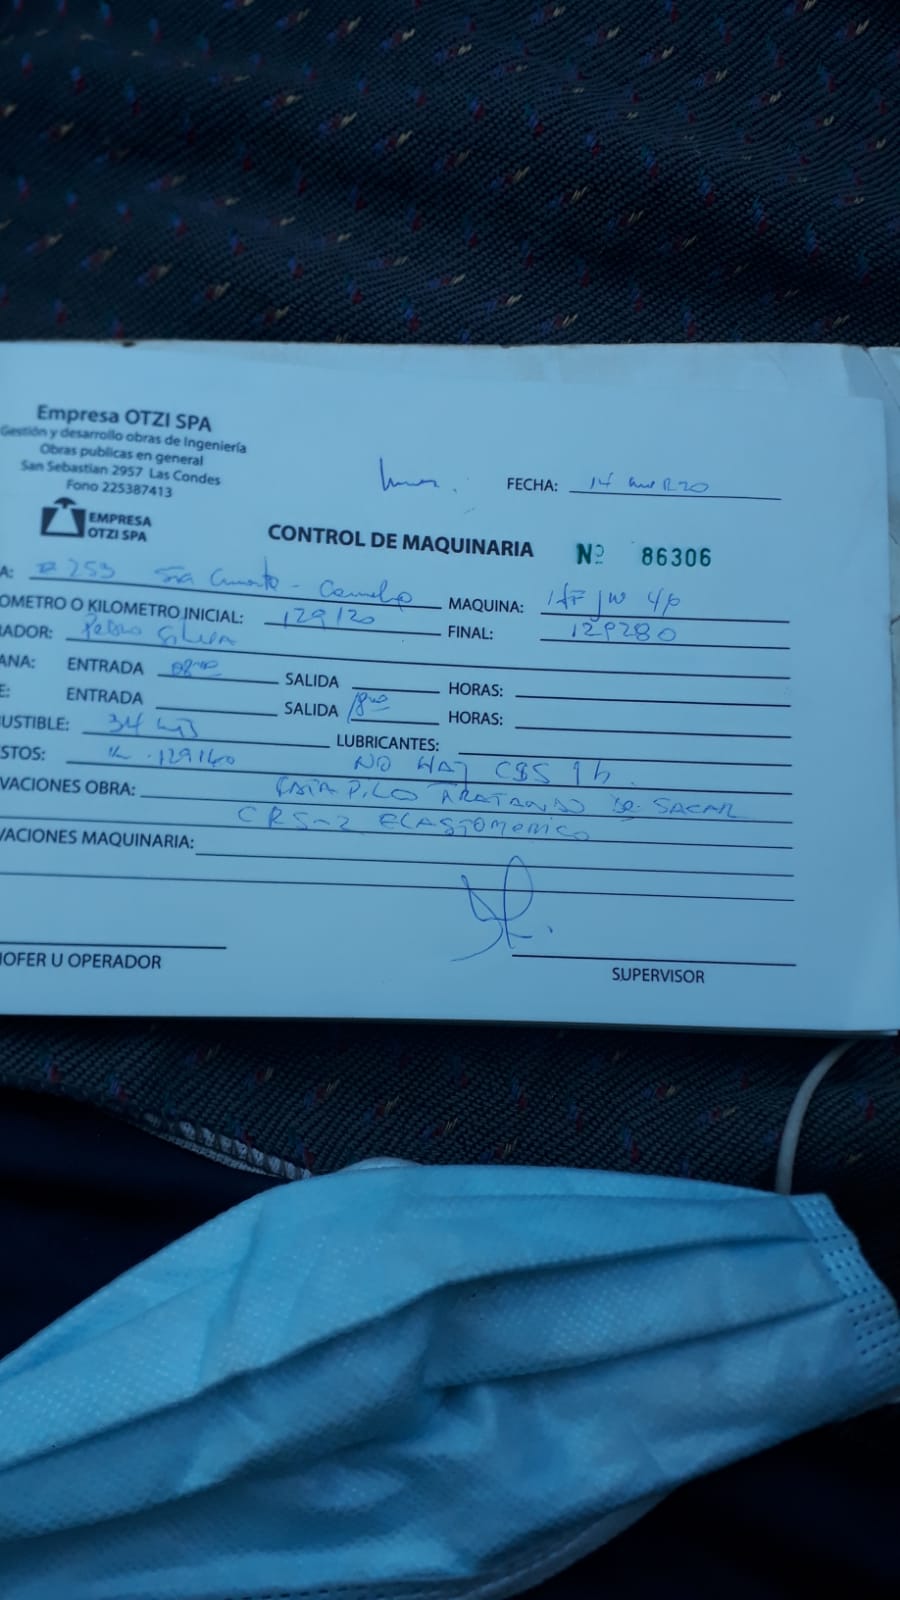 Empresa OTZI SPA
Gestión y desarrollo obras de Ingeniería
Obras publicas en general
San Sebastian 2957 Las Condes
Fono 225387413
EMPRESA
OTZI SPA
FECHA: 14
CONTROL DE MAQUINARIA Nº 86306
A: # 253 Sta
MAQUINA:
OMETRO O KILOMETRO INICIAL: 129120 FINAL: 129280
RADOR: Pedro Silva
ANA: ENTRADA 08 SALIDA HORAS:
E: ENTRADA SALIDA 18 HORAS:
USTIBLE: 34 LUBRICANTES:
STOS: 129140 NO HAY CSS 1h.
VACIONES OBRA: TRATANDO DE SACAR
CRS-2 ELASTOMERICO
VACIONES MAQUINARIA:
HOFER U OPERADOR SUPERVISOR